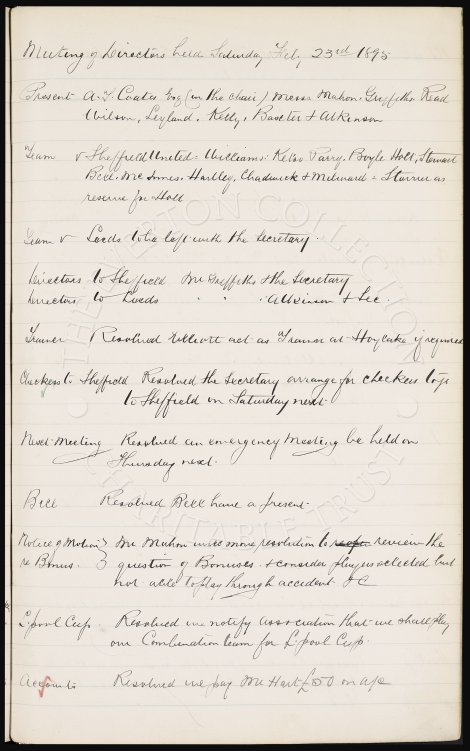 Meeting of Directors held Saturday Feby 23rd 1895
Present A.T. Coates Esq (in the chair) Messrs Mahon. Griffiths. Read
Wilson, Leyland. Kelly. Baxter & Atkinson
Team v Sheffield United. Williams. Kelso Parry. Boyle Holt, Stewart
Bell. McInnes. Hartley, Chadwick & Milward - Storrier as
reserve for Holt
Team v Leeds to be left with the Secretary.
Directors to Sheffield Mr Griffiths & the Secretary
Directors to Leeds " " Atkinson & Sec.
Trainer Resolved Elliott act as Trainer at Hoylake if required
Checkers to Sheffield Resolved the Secretary arrange for checkers to go
to Sheffield on Saturday next.
Next Meeting Resolved an emergency meeting be held on
Thursday next.
Bell Resolved Bell have a present.
Notice of Motion } Mr Mahon will move resolution to review the
re Bonus. } question of Bonuses. & consider players selected but
not able to play through accident &c
L'pool Cup. Resolved we notify association that we shall play
our Combination team for L'pool Cup.
Accounts Resolved we pay Mr Hart £50 on a/c
THE EVERTON COLLECTION
CHARITABLE TRUST